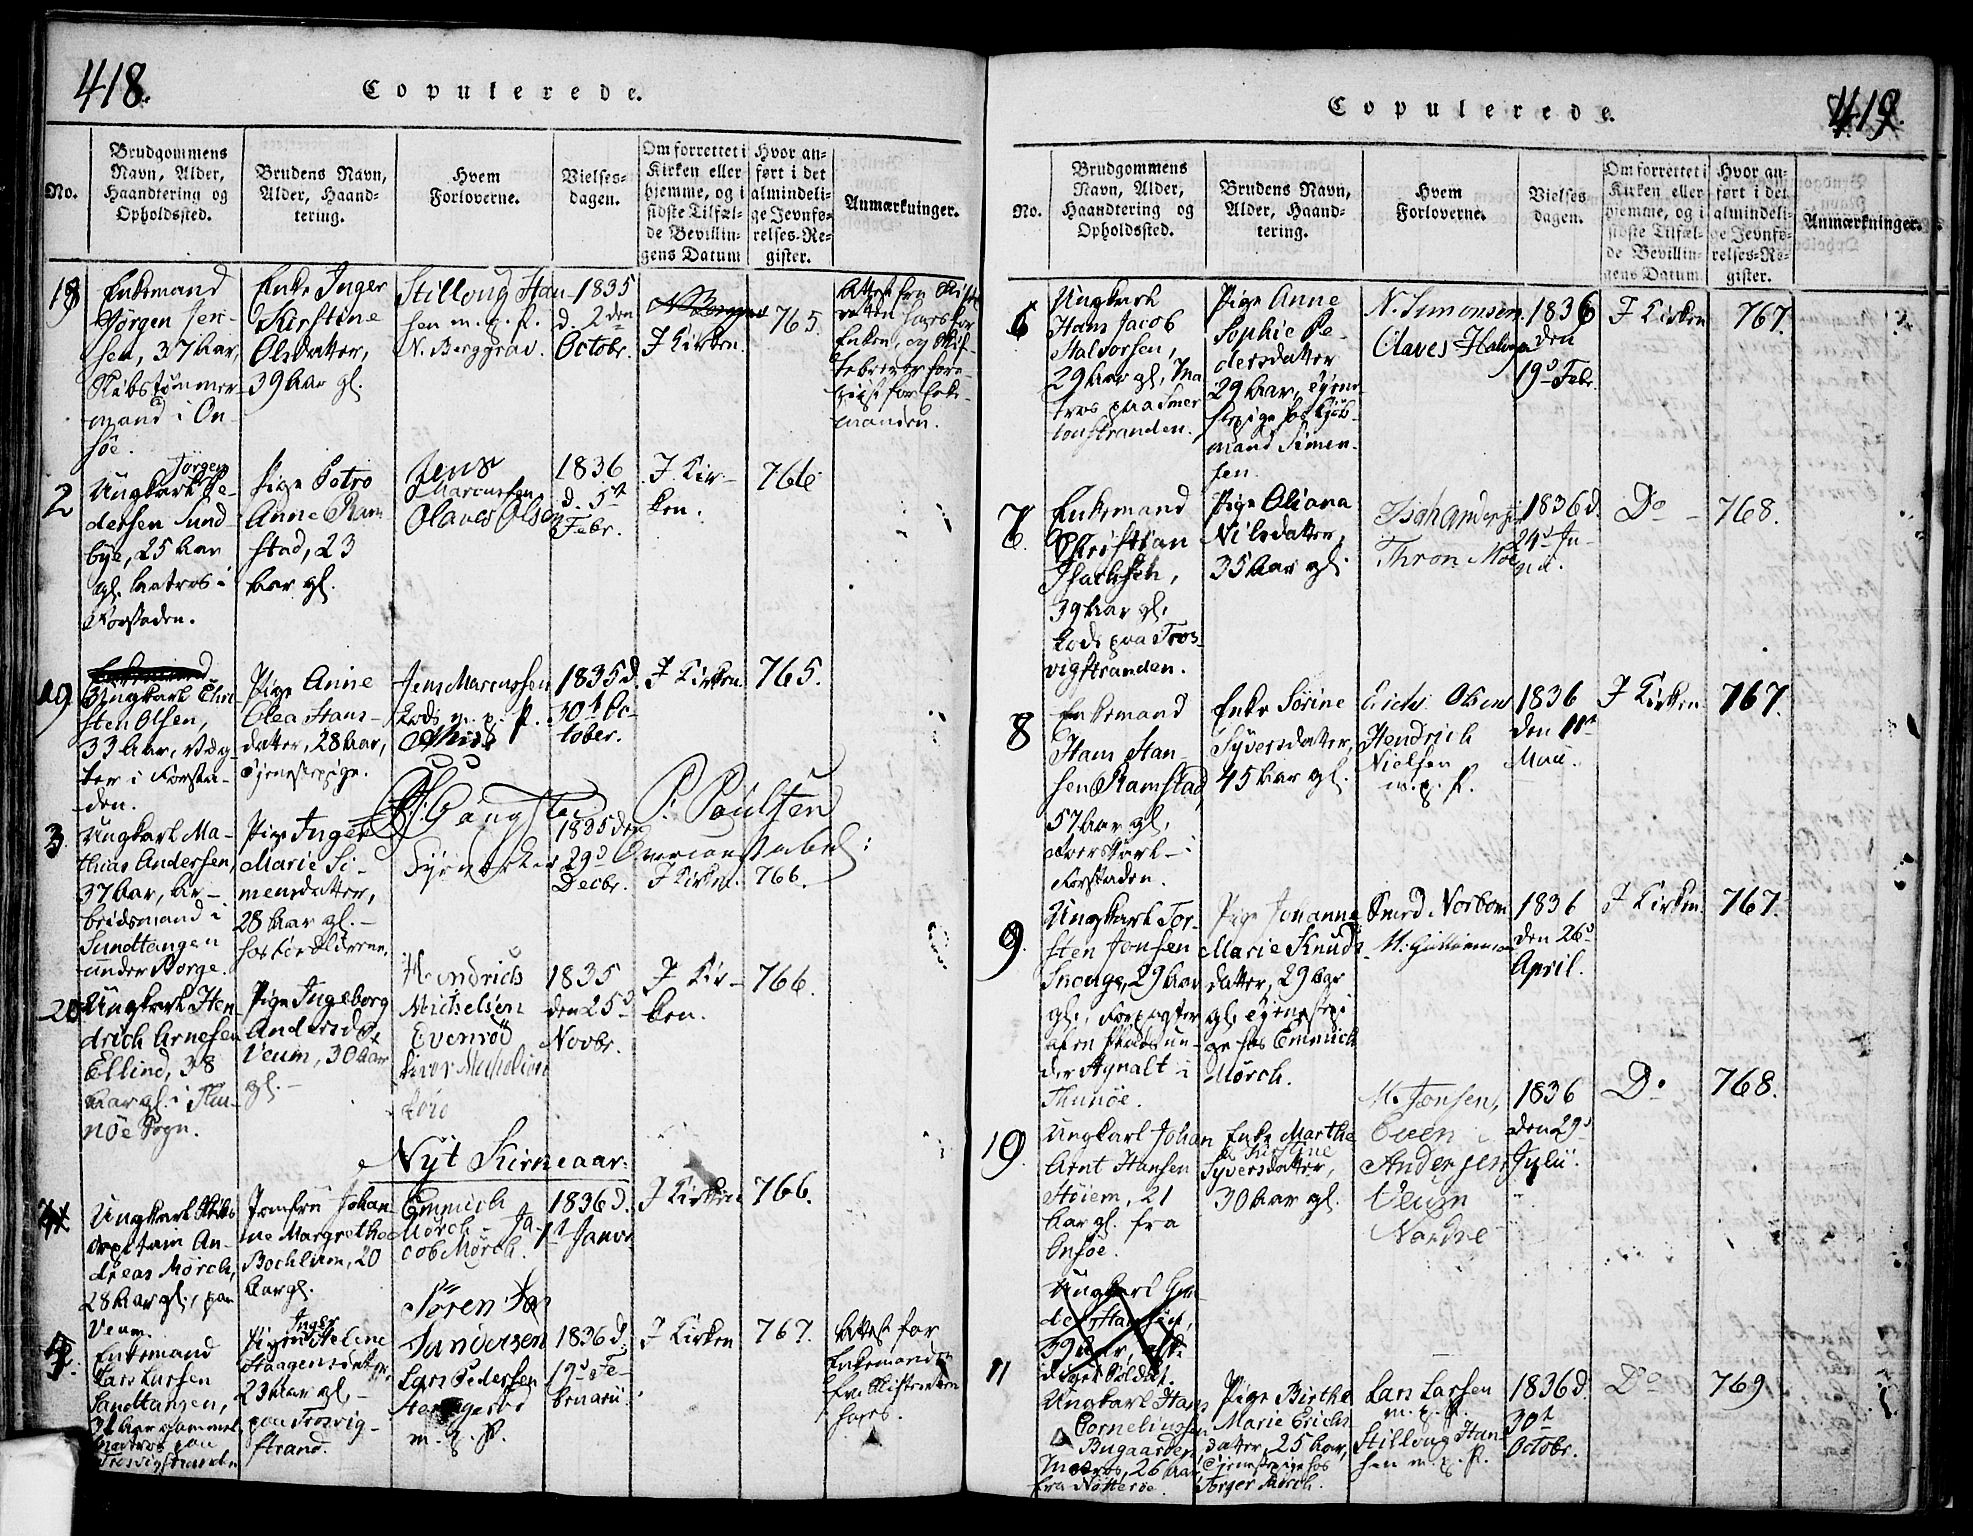 418.
Copulerede.
No.
Brudgommens
Navn, Alder,
Haandtering og
Opholdssted.
Brudens Navn,
Alder, Haand-
tering.
Hvem
Forloverne.
Vielses-
dagen.
Om forrettet i
Kirken eller
hjemme, og i
sidste Tilfæl-
de Bevillin-
gens Datum
Hvor an-
ført i det
almindeli-
ge Jevnfø-
relses-Re-
gister.
Anmærkninger.
18
Enkemand
Jørgen Jen-
sen, 37 Aar,
mand i On-
söe.
Enke Inger
Kirstine
Olsdatter,
39 Aar gl.
Stilloug Han-
sen m. p. P.
N. Berggrav.
1835
d. 2den
Octobr.
I Kirken.
765.
2
Ungkarl Pe-
Jørgen
dersen Sund-
bye, 25 Aar
gl. Matros i
Forstaden.
Pige Petro
Anne Ram
stad, 23
Aar gl.
Jens
Marcussen
Olaves Olsen
1836
d. 5t
Febr.
I Kir-
ken.
766
19
Ungkarl Chri
sten Olsen,
33 Aar, Væg
ter i Forsta-
den.
Pige Anne
Olea Hans-
datter, 28 Aar,
Tjenestepige.
Jens Marcussen
m. p. P.
1835 d.
30t Oc-
tober.
I Kirken.
765.
3
Ungkarl Ma-
thias Andersen,
37 Aar, Ar-
beidsmand i
Sundtangen
under Borge.
Pige Inger
Marie Si-
mensdatter,
28 Aar gl.-
hos Forældrene.
Fyrverker
P. Poulsen
1835 den
29d
Decbr.
I Kirken.
766.
20
Ungkarl Hen-
drich Arnesen
Ellind, 38
Aar gl. i Thu-
nöe Sogn.
Pige Ingeborg
Andersdr
Veum, 30 Aar
gl.-
Hendrich
Michelsen
Evenröd
1835
den 25d
Novbr.
I Kir-
ken.
766.
Nyt Kirkeaar.
Ungkarl
Capitain An-
dreas Mörch,
28 Aar gl., paa
Veum.
Jomfru Johan-
ne Margrethe
Bochlum, 20
Aar gl.
Emmich
Mörch - Ja-
cob Mörch.
1836 d.
1t Januar
I Kirken
766.
5.
Enkemand
Lars Larsen
Sandtangen,
Matros paa
Trosvigstranden
Inger
Helene
Haagensdatter,
23 Aar gl.-
paa Trosvig-
strand.
Sören
Sandersen
Lars Pedersen
m. p. P.
1836 d.
19d Fe-
bruarii
I Kirken
767.
Attest for
Enkemanden
fra Skifteretten
haves.
419.
Copulerede.
No.
Brudgommens
Navn, Alder,
Haandtering og
Opholdssted.
Brudens Navn,
Alder, Haand-
tering.
Hvem
Forloverne.
Vielses
dagen.
Om forrettet i
Kirken eller
hjemme, og i
sidste Tilfæl-
de Bevillin-
gens Datum
Hvor an-
ført i det
almindeli-
ge Jevnfø-
relses-Re-
gister.
Anmærkninger.
6
Ungkarl
Hans Jacob
Halvorsen,
29 Aar gl, Ma
tros paa Smer
toustranden.
Pige Anne
Sophie Pe-
dersdatter
29 Aar, Tjene-
stepige hos Kjöb-
mand Simen-
sen.
N. Simonsen.
Olaves
1836
den
19d Febr.
I Kirken
767.
7.
Enkemand
Christian
Isachsen,
39 Aar gl.
Lods paa Tros
vigstranden.
Pige Oliana
Nilsdatter,
35 Aar gl.
Thron Moe
1836 d.
24d Ju-
nii.
Do -
768.
8
Enkemand
Hans Han-
sen Ramstad
57 Aar gl,
i
Forstaden.
Enke Sörine
Syversdatter,
45 Aar gl.
Erich Olsen
Hendrich
Nielsen
m. p. P.
1836
den 11t
Maii.
I Kirken
767.
9.
Ungkarl Tor-
sten Jonsen
29 Aar
gl., Forpagter
un-
der Aynalt i
Thunöe.
Pige Johanne
Marie Knuds-
datter, 29 Aar
gl. Tjenestepi
ge hos Emmich
Mörch.
Norbom
1836
den 26d
April.
I Kirken
767.
10.
Ungkarl Johan
Arnt Hansen
Höiem, 21
Aar gl. fra
Onsöe.
Enke Marthe
Kirstine
Syversdatter,
30 Aar gl.
M. Jonsen,
Even
Andersen
Veum
Nordre
1836
den 29d
Julii.
Do
768.
11
Ungkarl
39 Aar,
Soldat.
Ungkarl Hans
Corneliussen
Bugaarden,
Matros, 26 Aar,
fra Nötteröe.
Pige Birthe
Marie Erichs
datter, 25 Aar,
Tjenestepige hos
Jörger Mörch.
Lars Larsen
m. p. P.
Stilloug Han-
sen m. p. P.
1836 d.
30t
Octobr.
Do
769